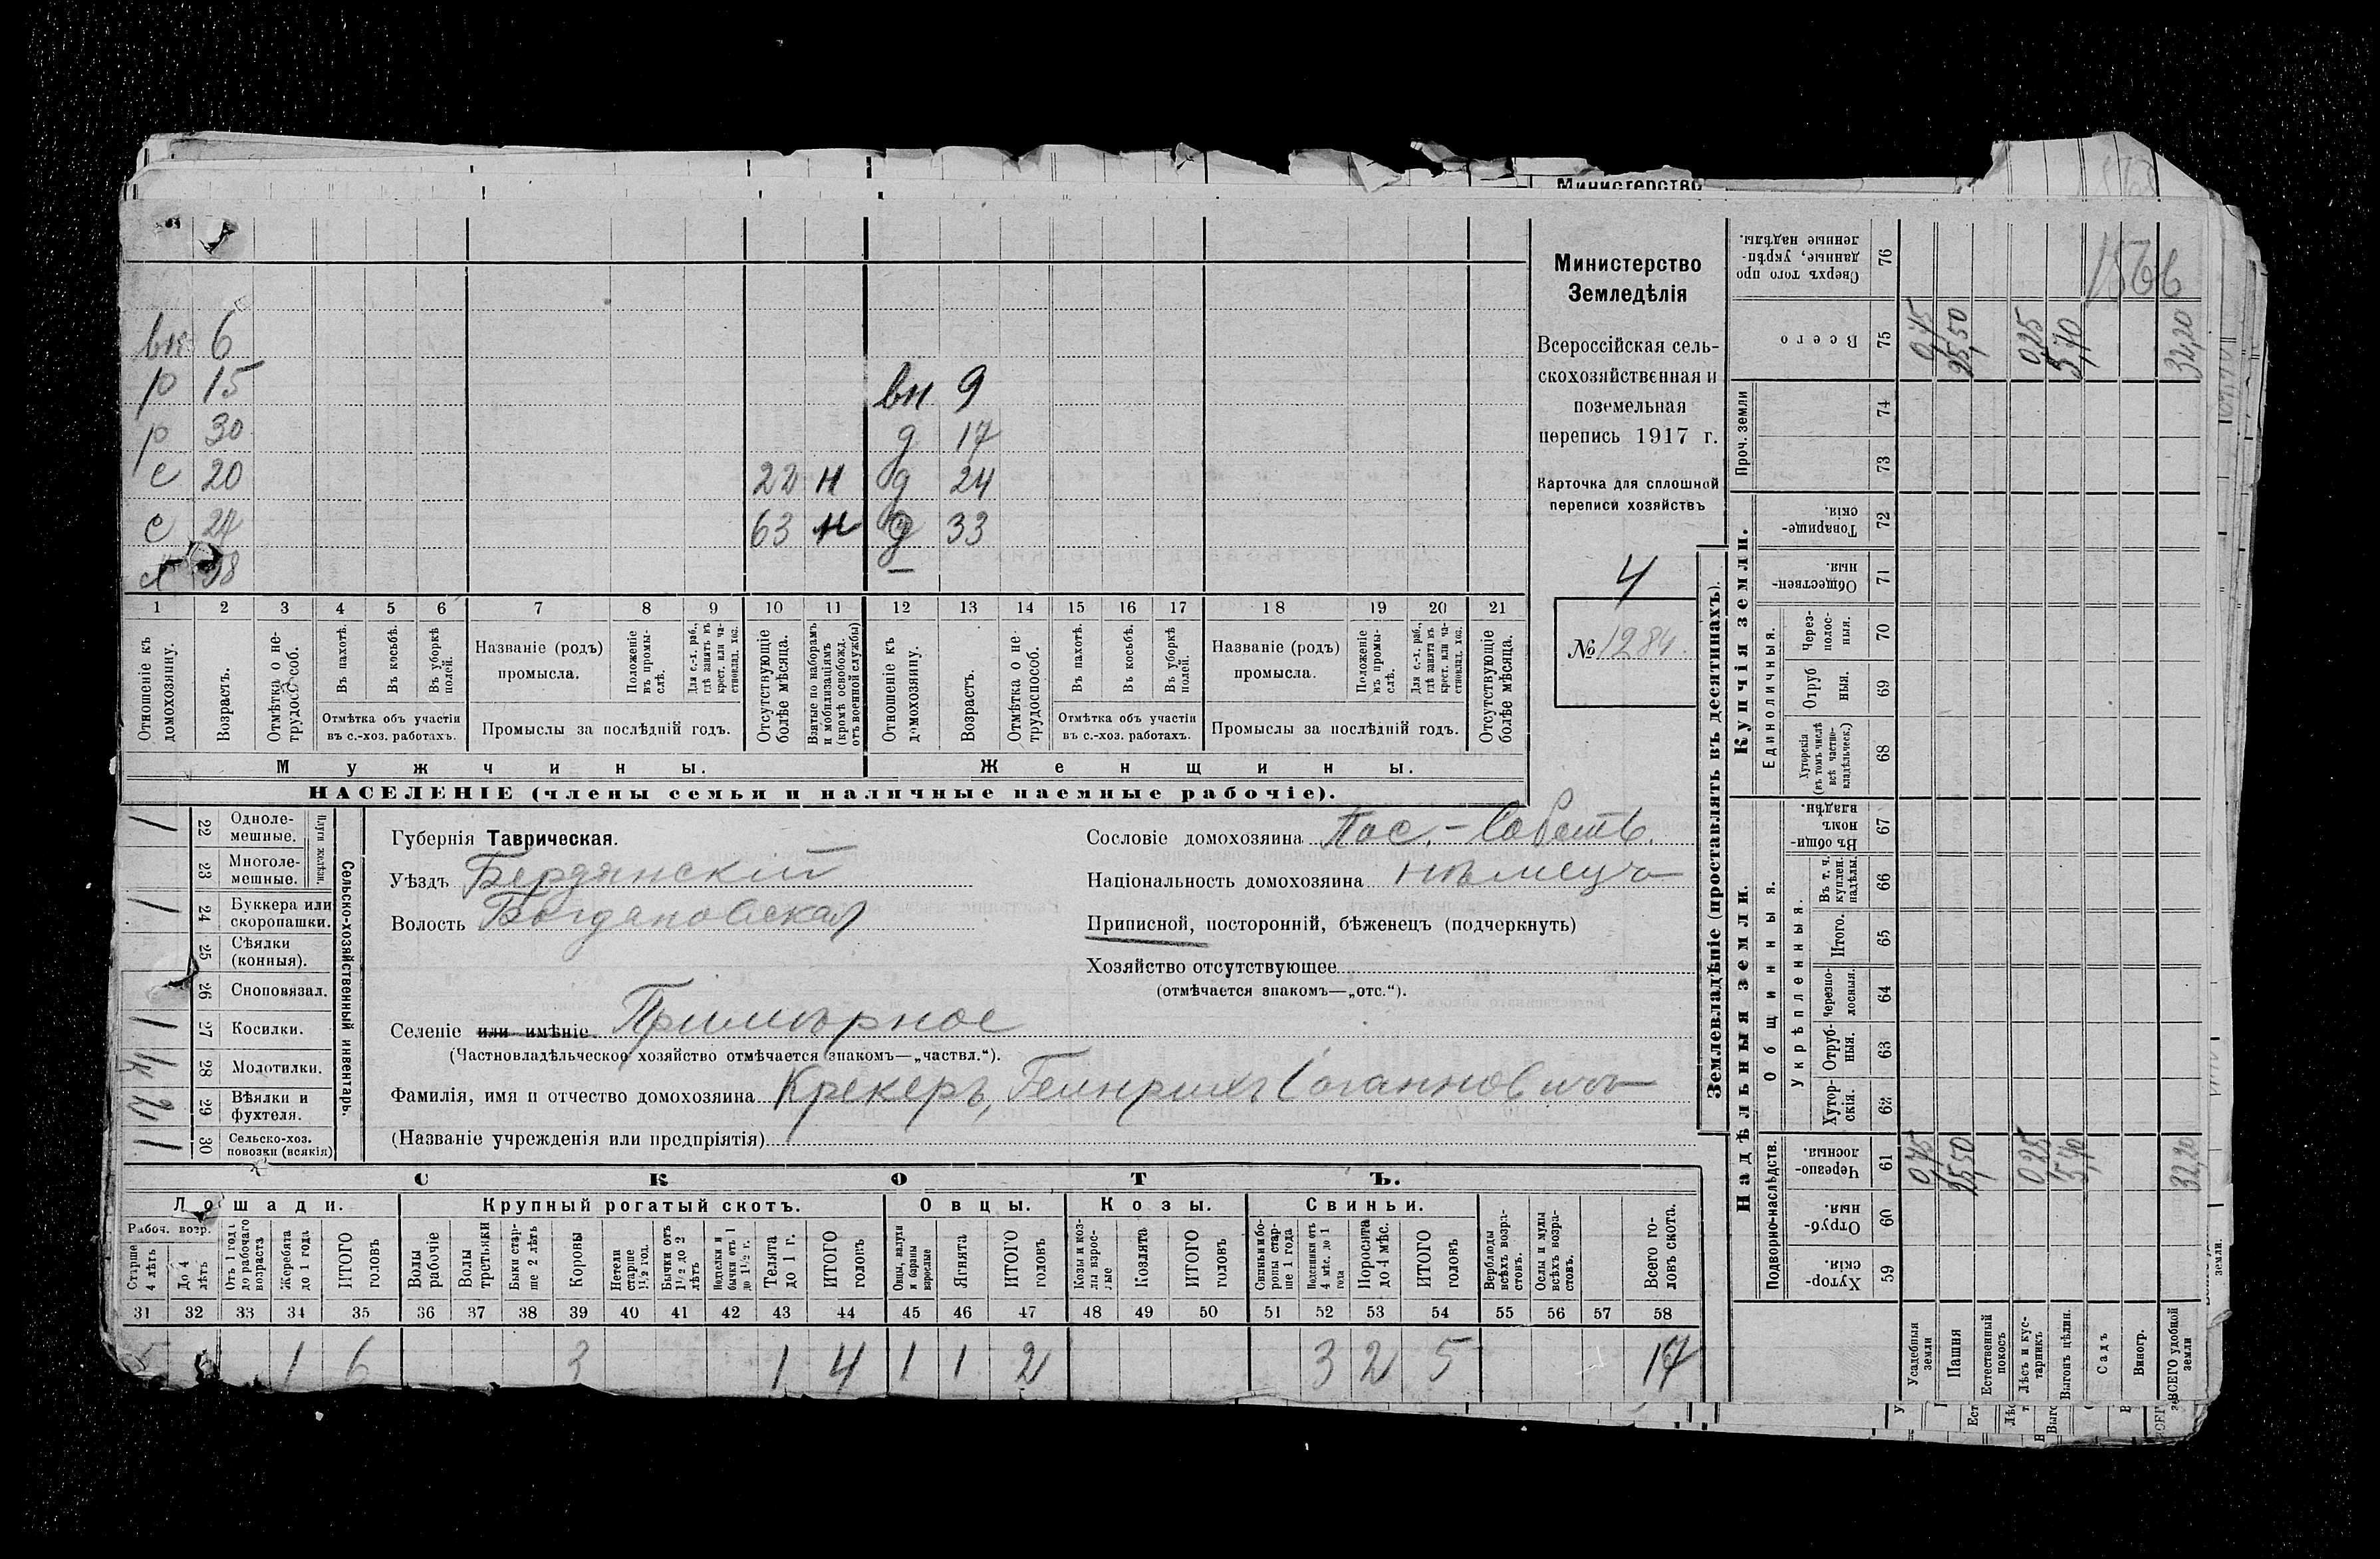 Министерство
вн 6
р 15 вн 9
р 30 д 17
с 20 22 н д 24
с 24 63 н д 33
х 58 —
1 2 3 4 5 6 7 8 9 10 11 12 13 14 15 16 17 18 19 20 21
Отношеніе къ домохозяину.
Возрастъ.
Отмѣтка о не-трудоспособ.
Въ пахотѣ.
Въ косьбѣ.
Въ уборкѣ полей.
Отмѣтка объ участіи въ с.-хоз. работахъ.
Названіе (родъ) промысла.
Положеніе въ промы-слѣ.
Для с.-х. раб., гдѣ занятъ въ крест. или ча-стновлад. хоз.
Промыслы за послѣдній годъ.
Отсутствующіе болѣе мѣсяца.
Взятые по наборамъ и мобилизаціямъ (кромѣ освобожд. отъ военной службы)
Отношеніе къ домохозяину.
Возрастъ.
Отмѣтка о не-трудоспособ.
Въ пахотѣ.
Въ косьбѣ.
Въ уборкѣ полей.
Отмѣтка объ участіи въ с.-хоз. работахъ.
Названіе (родъ) промысла.
Положеніе въ промы-слѣ.
Для с.-х. раб., гдѣ занята въ крест. или ча-стновлад. хоз.
Промыслы за послѣдній годъ.
Отсутствующіе болѣе мѣсяца.
Мужчины. Женщины.
НАСЕЛЕНІЕ (члены семьи и наличные наемные рабочіе).
Министерство
Земледѣлія
Всероссійская сель-
скохозяйственная и
поземельная
перепись 1917 г.
Карточка для сплошной
переписи хозяйствъ
4
№ 1284.
1 22 Одноле-мешные.
23 Многоле-мешные.
Плуги желѣзн.
1 24 Буккера или скоропашки.
25 Сѣялки (конныя).
26 Сноповязал.
1 27 Косилки.
28 Молотилки.
29 Вѣялки и фухтеля.
30 Сельско-хоз. повозки (всякія)
Сельско-хозяйственный инвентарь.
Губернія Таврическая.
Уѣздъ Бердянскій
Волость Богдановская
Селеніе или имѣніе Примѣрное
(Частновладѣльческое хозяйство отмѣчается знакомъ—„частвл.“).
Фамилія, имя и отчество домохозяина Крекеръ, Гейнрихъ Іоганновичъ
(Названіе учрежденія или предпріятія)
Сословіе домохозяина Пос.-Собств.
Національность домохозяина нѣмецъ
Приписной, посторонній, бѣженецъ (подчеркнуть)
Хозяйство отсутствующее
(отмѣчается знакомъ—„отс.“).
СКОТЪ.
Лошади. Крупный рогатый скотъ. Овцы. Козы. Свиньи.
Рабоч. возр.
Старше 4 лѣтъ
До 4 лѣтъ
Отъ 1 года до рабочаго возраста
Жеребята до 1 года
ИТОГО головъ
Волы рабочіе
Волы третьяки
Быки стар-ше 2 лѣтъ
Коровы
Нетели старше 1½ год.
Бычки отъ 1½ до 2 лѣтъ
Телки и бычки отъ 1 до 1½ г.
Телята до 1 г.
ИТОГО головъ
Овцы, валухи и бараны взрослые
Ягнята
ИТОГО головъ
Козы и коз-лы взрос-лые
Козлята
ИТОГО головъ
Свиньи и бо-ровы стар-ше 1 года
Подсвинки отъ 4 мѣс. до 1 года
Поросята до 4 мѣс.
ИТОГО головъ
Верблюды всѣхъ возра-стовъ.
Ослы и мулы всѣхъ возра-стовъ.
Всего го-ловъ скота.
31 32 33 34 35 36 37 38 39 40 41 42 43 44 45 46 47 48 49 50 51 52 53 54 55 56 57 58
1 6 3 1 4 1 1 2 3 2 5 17
Землевладѣніе (проставлять въ десятинахъ).
Надѣльныя земли.
Подворно-наслѣдств.
Хутор-скія. 59
Отруб-ныя. 60
Черезпо-лосныя. 61
Общинныя.
Укрѣпленныя.
Хутор-скія. 62
Отруб-ныя. 63
Черезпо-лосныя. 64
Итого. 65
Въ т. ч. куплен. надѣлы. 66
Въ общи-номъ владѣн. 67
Купчія земли.
Единоличныя.
Хуторскія (въ томъ числѣ всѣ частно-владѣльческ.) 68
Отруб ныя. 69
Через-полос-ныя. 70
Обществен-ныя. 71
Товарище-скія. 72
Проч. земли 73 74
Всего 75
Сверхъ того про данные, укрѣп-ленные надѣлы. 76
Усадебныя земли 0,45 0,45
Пашня 25,50 25,50
Естественный покосъ
Лѣсъ и кус-тарникъ 0,25 0,25
Выгонъ цѣлин. 5,40 5,40
Садъ
Виногр.
ВСЕГО удобной земли 32,20 32,20
1566